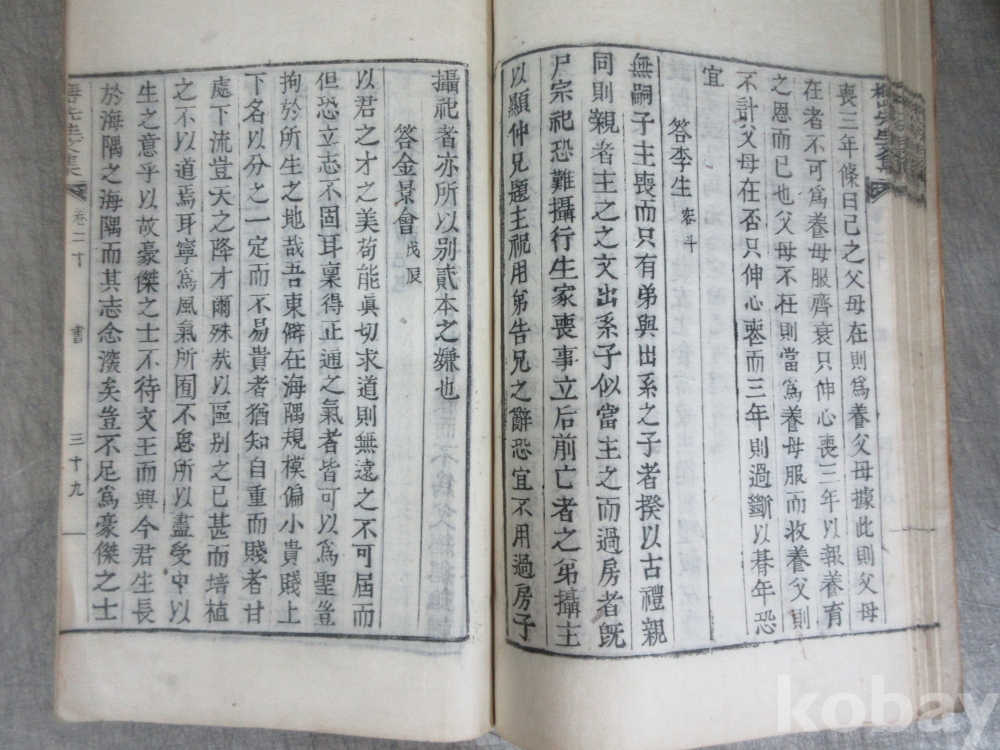 喪三年條曰己之父母在則爲養父母據此則父母
在者不可爲養母服齊衰只伸心喪三年以報養育
之恩而已也父母不在則當爲養母服而收養父則
不計父母在否只伸心喪而三年則過斷以朞年恐
宜
答李生 宻斗
無嗣子主喪而只有弟與出系之子者揆以古禮親
同則親者主之之文出系子似當主之而過房者旣
尸宗祀恐難攝行生家喪事立后前亡者之弟攝主
以顯仲兄題主祝用弟告兄之辭恐宜不用過房子
攝祀者亦所以别貳本之嫌也
答金景會 戊辰
以君之才之美苟能眞切求道則無遠之不可屆而
但恐立志不固耳稟得止通之氣者皆可以爲聖豈
拘於所生之地哉吾東僻在海隅規模偏小貴賤上
下名以分之一定而不易貴者猶知自重而賤者甘
處下流豈天之降才爾殊㢤以區别之已甚而培植
之不以道焉耳寧爲風氣所囿不思所以盡受中以
生之意乎以故豪傑之士不待文王而興今君生長
於海隅之海隅而其志念湥矣豈不足爲豪傑之士
卷二十 書 三十九
kobay